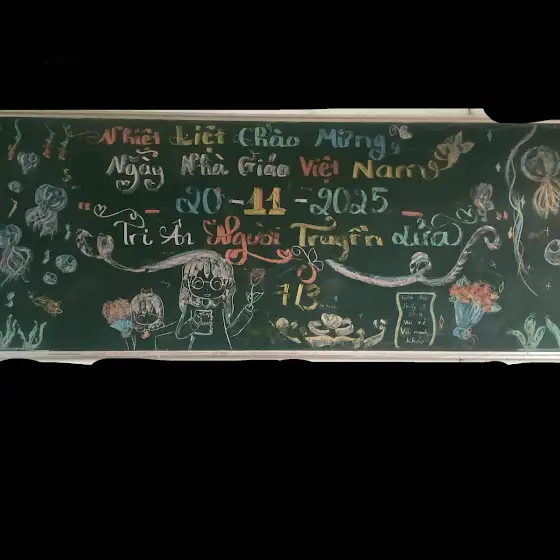 Nhiệt Liệt Chào Mừng
Ngày Nhà Giáo Việt Nam
- 20 - 11 - 2025 -
Tri Ân Người Truyền Lửa
7/3